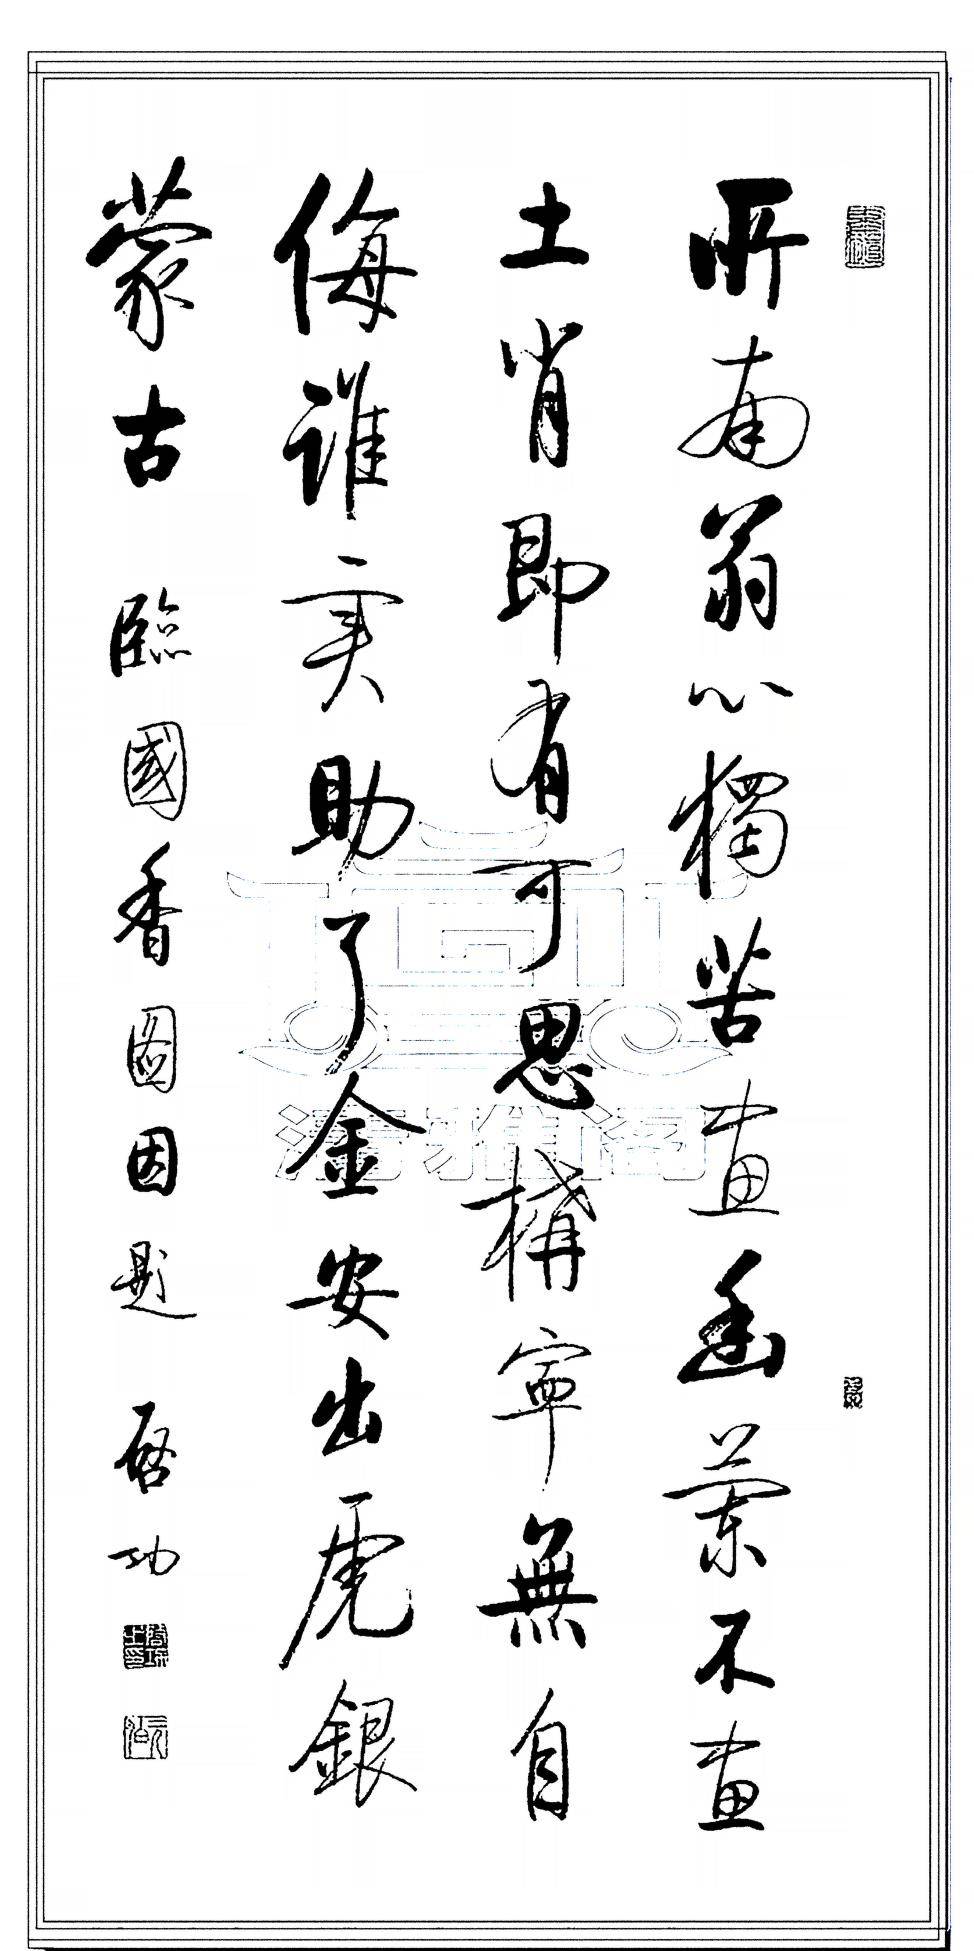 所南翁心獨苦畫幽蘭不畫
土肖即有可思構寧無自
侮誰实助了金安出虎銀
蒙古 臨國香圖因題 启功
清雅阁